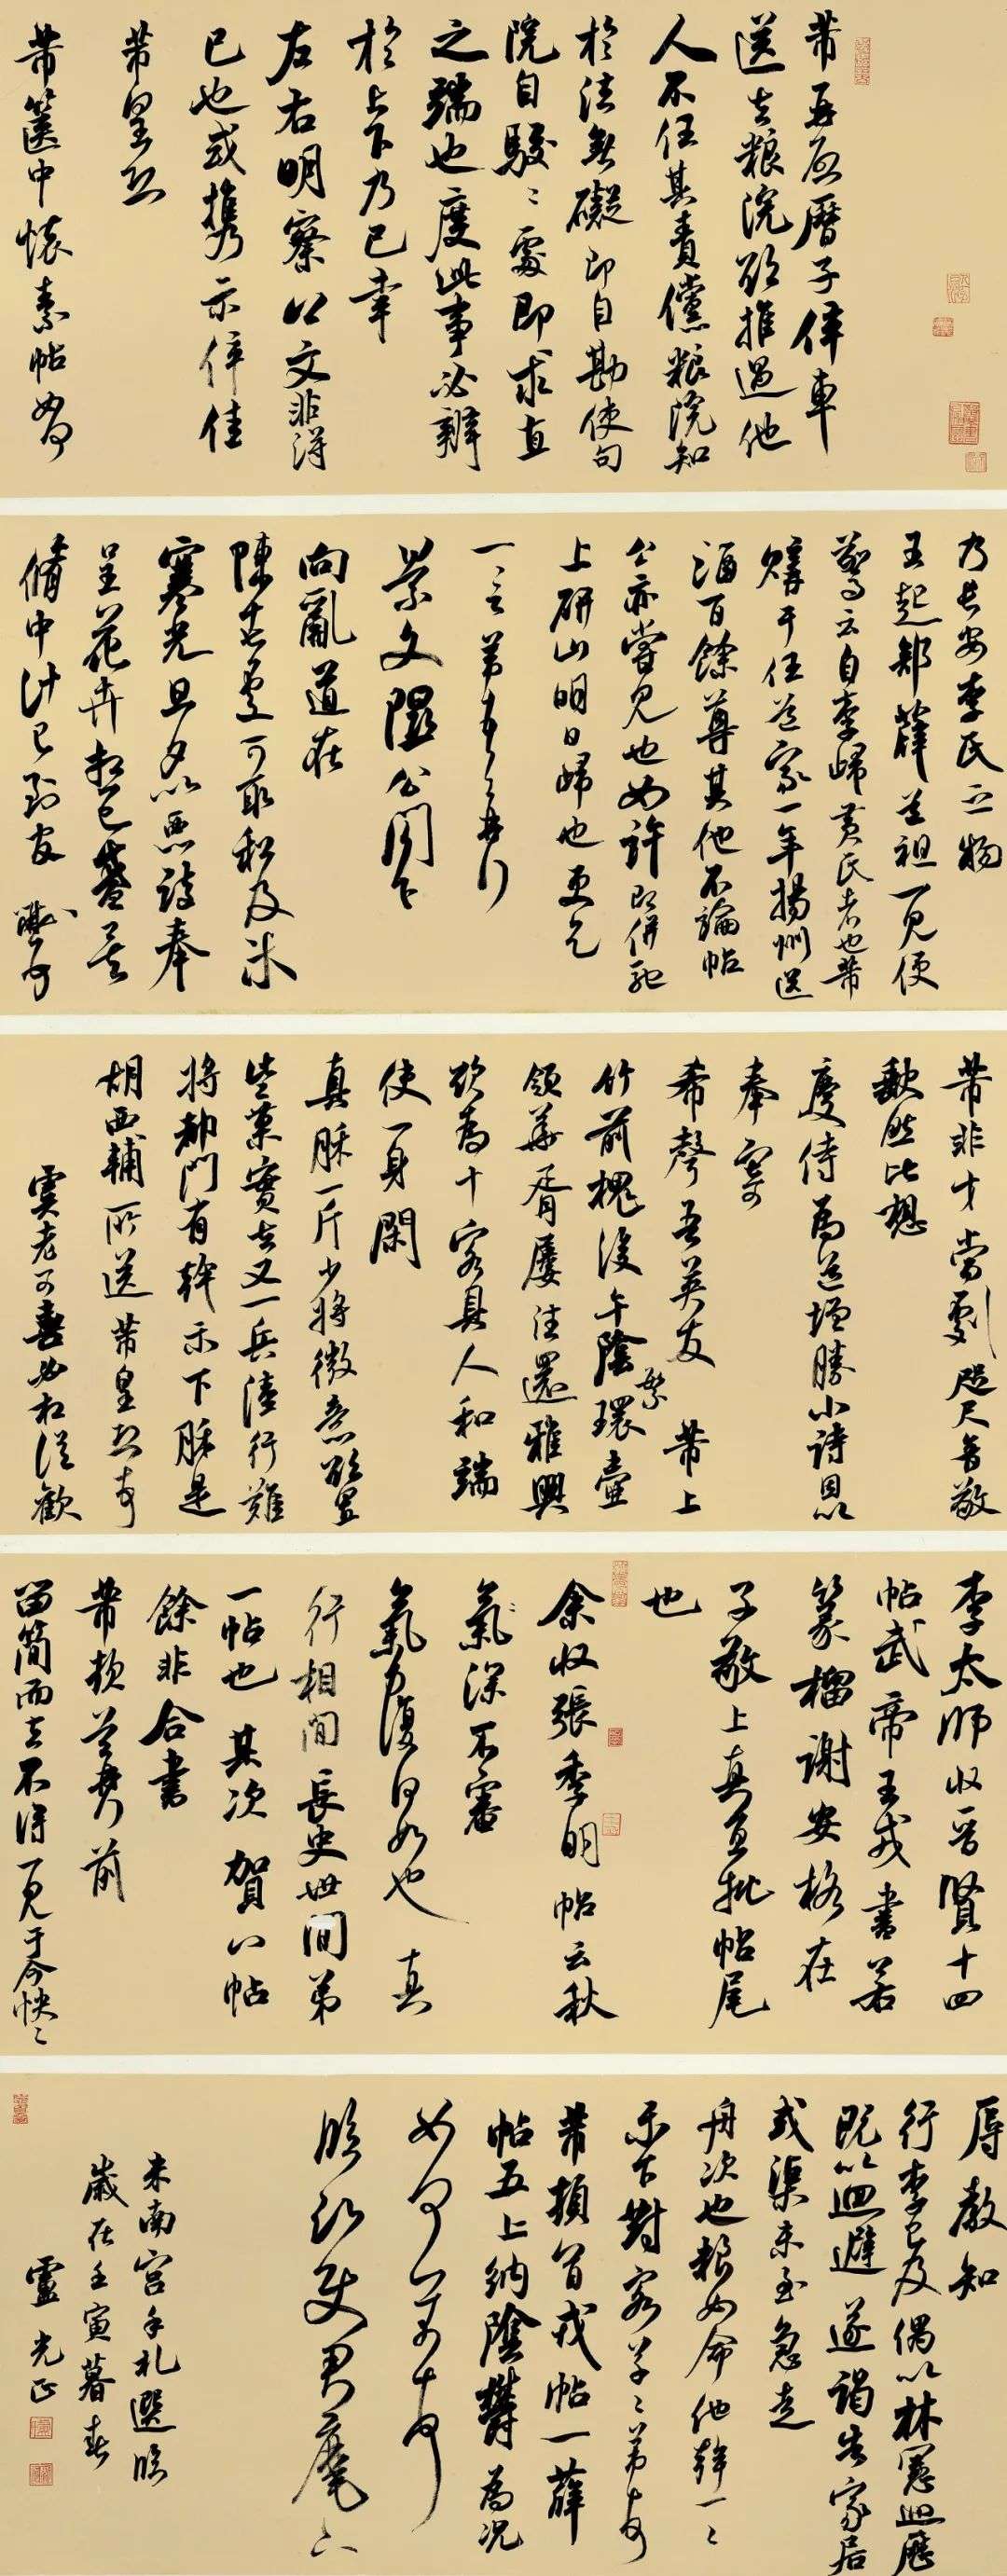 芾再启曆子倅車
送去粮院欲推過他
人不任其責儻粮院知
於法無礙即自勘使句
院自駮〻處即求直
之端也度此事必辦
於上下乃已幸
左右明察以文非得
已也或携示倅佳
芾皇恐
芾箧中懷素帖如何
乃長安李氏之物
王起鄆薛道祖一見便
驚云自李歸黄氏者也芾
購于任道家一年揚州送
酒百餘尊其他不論帖
公亦嘗見也如許即併馳
上研山明日歸也更乞
一言芾頓首再拜
景文隰公閣下
向亂道在
陳十七處可取租及米
寒光旦夕以惡詩奉
呈花卉想已盛矣
脩中計已到官
芾非才當劇咫尺音敬
歉然比想
慶侍為道增勝小詩因以
奉寄
希聲吾英友 芾上
竹前槐後午陰繁環壺
領華胥屢往還雅興
欲為十客具人和端
使一身閑
真酥一斤少將微意欲置
些菓實去又一兵陸行難
將都門有幹示下酥是
胡西輔所送芾皇恐
虞老可喜必相從歡
李太師收晉賢十四
帖武帝王戎書若
篆籀謝安格在
子敬上真宜批帖尾
也
余收張季明帖云秋
氣深不審
氣力復何如也 真
行相間長史世間第
一帖也 其次賀八帖
餘非合書
芾頓首再
留簡而去不得一見于今怏〻
辱教知
行李已及偶以林憲巡歷
既以迴避遂謁告家居
或渠未至急走
舟次也粮如命他幹一〻
示下對客草〻芾
芾頓首戎帖一薛
帖五上納陰欝為況
如何芾頓首
臨沂使君麾下
米南宫手札選臨
歲在壬寅暮春
盧光正